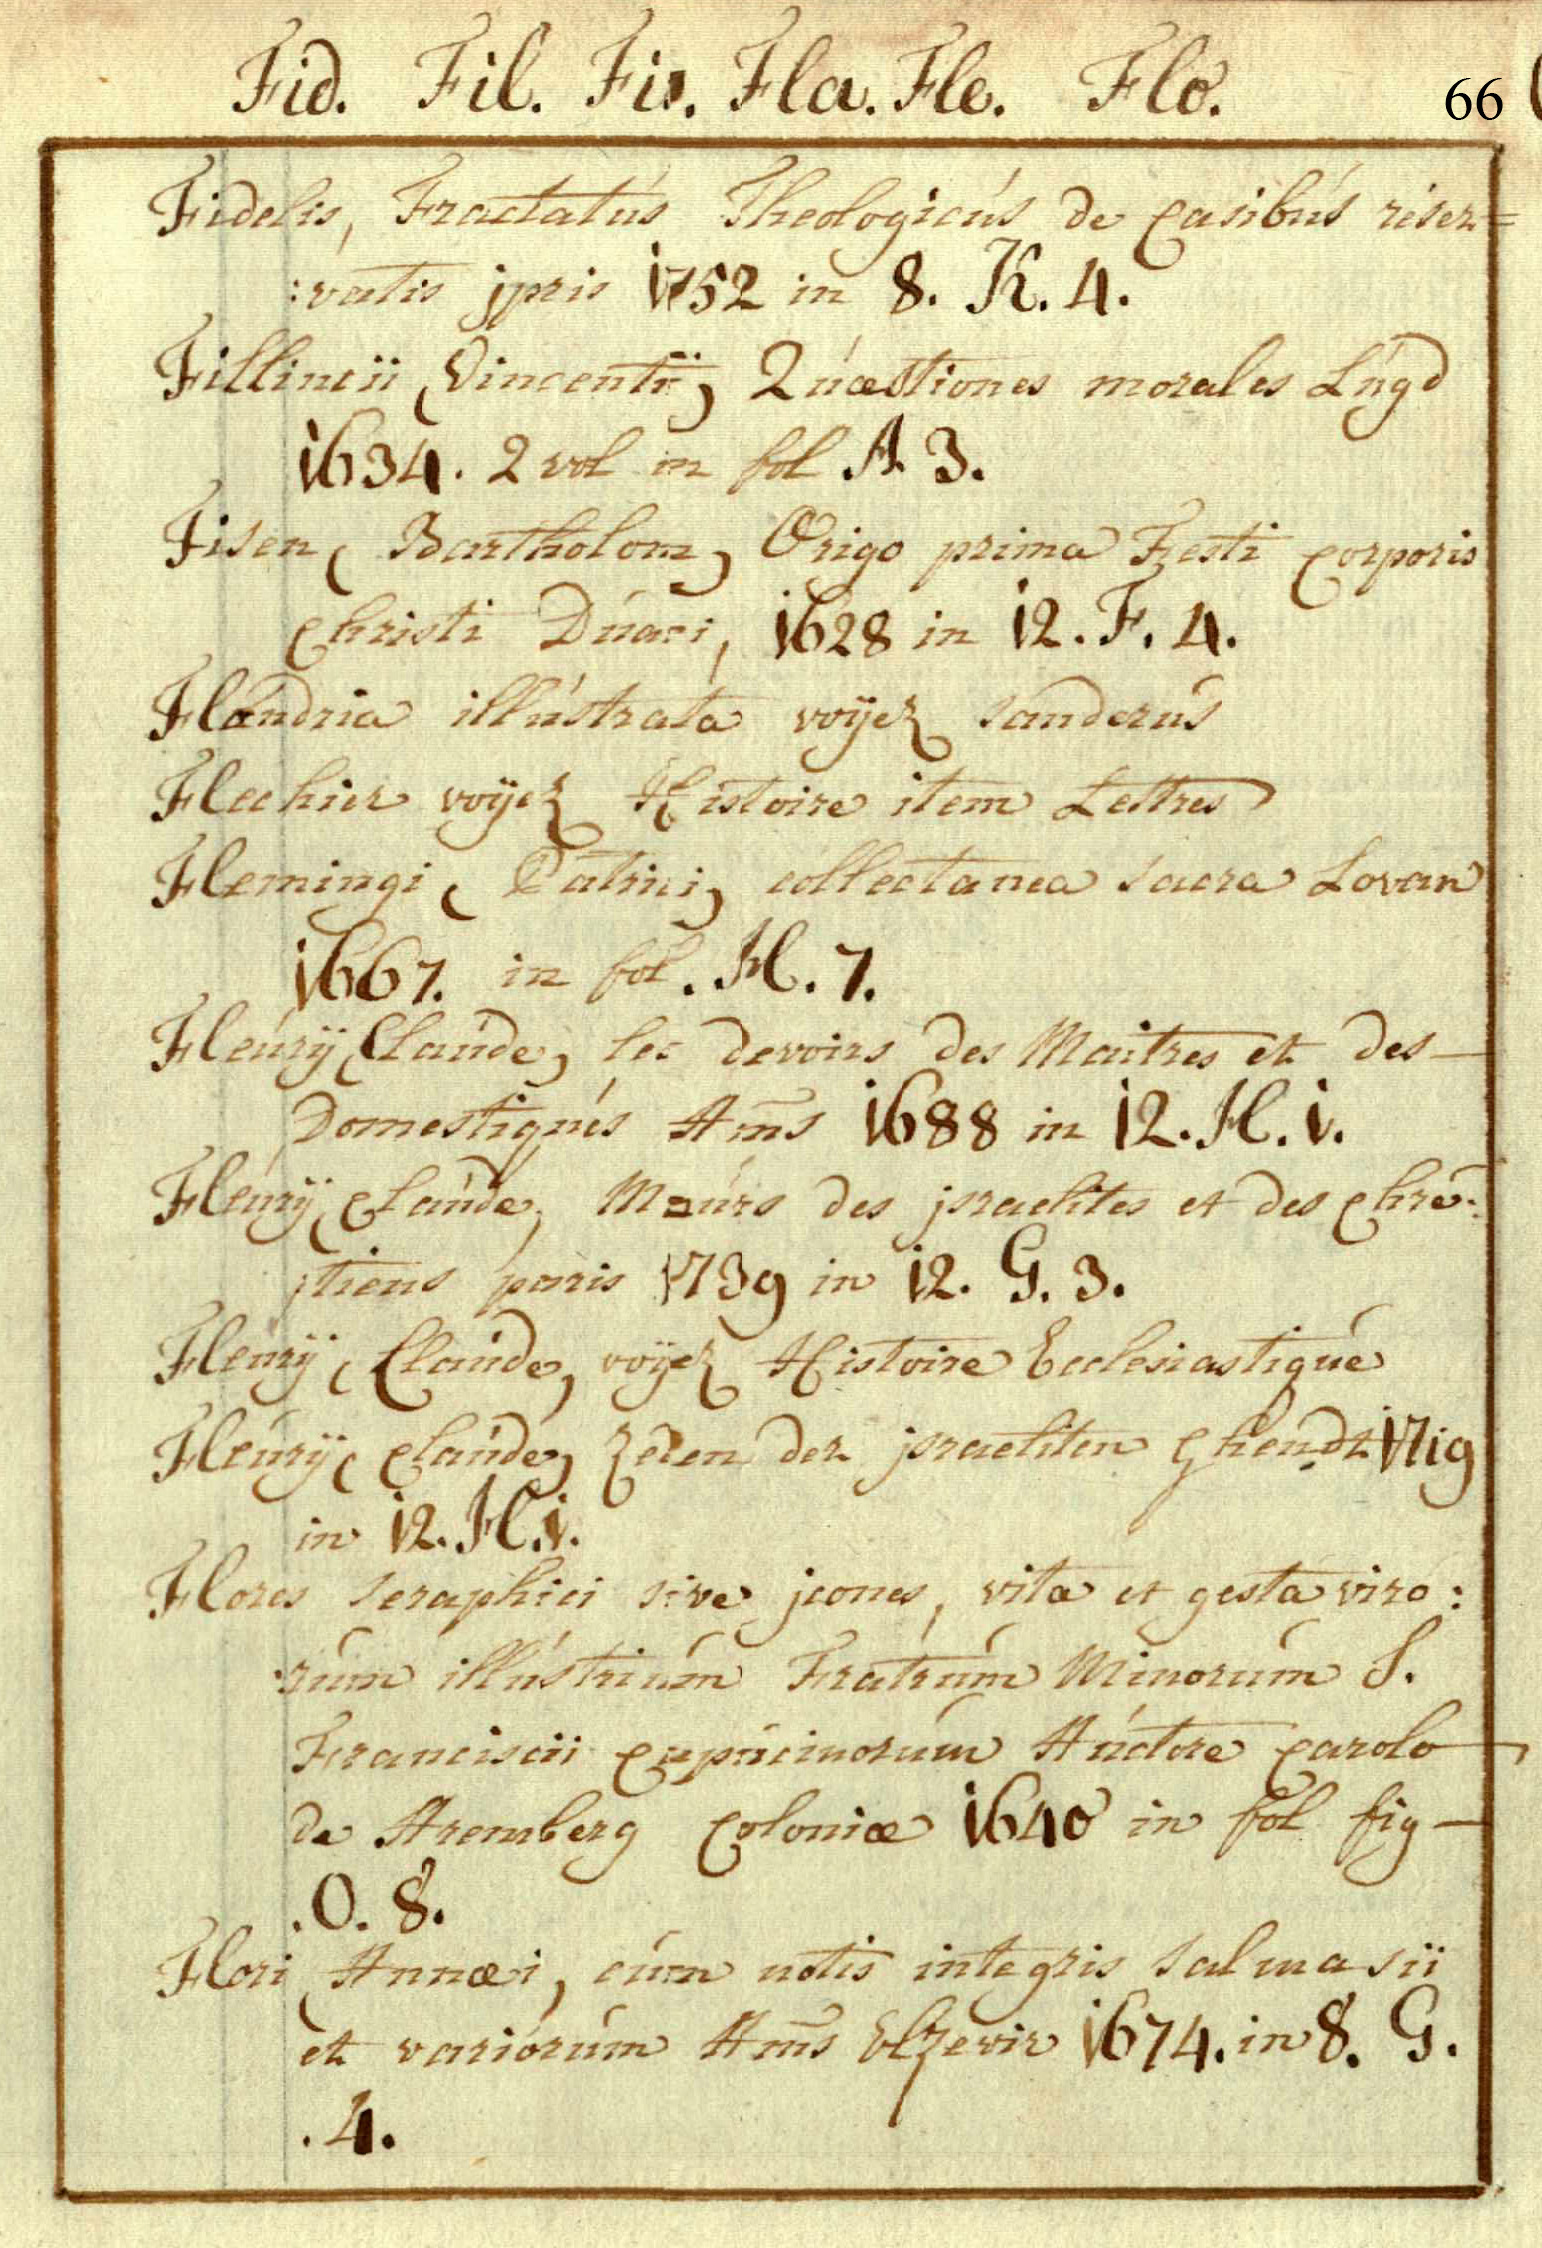 Fid. Fil. Fis. Fla. Fle. Flo. 66
Fidelis, Tractatus Theologicus de casibus reser=
:vatis jpris 1752 in 8. K. 4.
Fillincii (Vincentii) Quæstiones morales Lugd
1634. 2 vol in fol A. 3.
Fisen (Bartholom) Origo prima Festi corporis
Christi Duaci, 1628 in 12. F. 4.
Flandria illustrata voÿez sanderus
Flechier voÿez Histoire item Lettres
Flemingi (Patrici) collectanea sacra Lovan
1667. in fol. H. 7.
Fleurÿ (Claude) les devoirs des Maitres et des
Domestiques Ams 1688 in 12. H. 1.
Fleurÿ (Claude) Mœurs des jsraelites et des chre:
:tiens paris 1739 in 12. G. 3.
Fleurÿ (Claude) voÿez Histoire Ecclesiastique
Fleurÿ (Claude) Zeden der jsraeliten Ghendt 1719
in 12. H. 1.
Flores seraphici sive jcones, vita et gesta viro:
:rum illustrium Fratrum Minorum S.
Franciscii capucinorum Auctore carolo
de Aremberg Coloniæ 1640 in fol fig
.O. 8.
Flori (Annæi, cum notis integris salmasii
et variorum Ams Elzevir 1674. in 8. G.
.4.